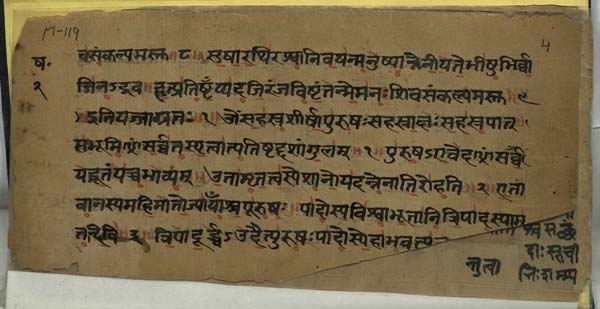 M-119
4
ष॰
२
वसंकल्पमस्तु ८ सुषारथिरश्वानिवयन्मनुष्यान्नेनीयतेभीषुभिर्वा
जिनऽइव हृत्प्रतिष्ठंयदजिरंजविष्ठंतन्मेमनः शिवसंकल्पमस्तु ९
१ ॐसहस्रशीर्षापुरुषः सहस्राक्षः सहस्रपात्
सभूमिᳪसर्वतस्पृत्वात्यतिष्ठद्दशांगुलम् १ पुरुषऽएवेदᳪसर्वं
यद्भूतंयच्चभाव्यम् उतामृतत्वस्येशानोयदन्नेनातिरोहति २ एतां
वानस्यमहिमातोज्यायाँश्चपूरुषः पादोस्यविश्वाभूतानित्रिपादस्याम
३ त्रिपादूर्द्ध्वऽउदैत्पुरुषः पादोस्येहाभवत्पु